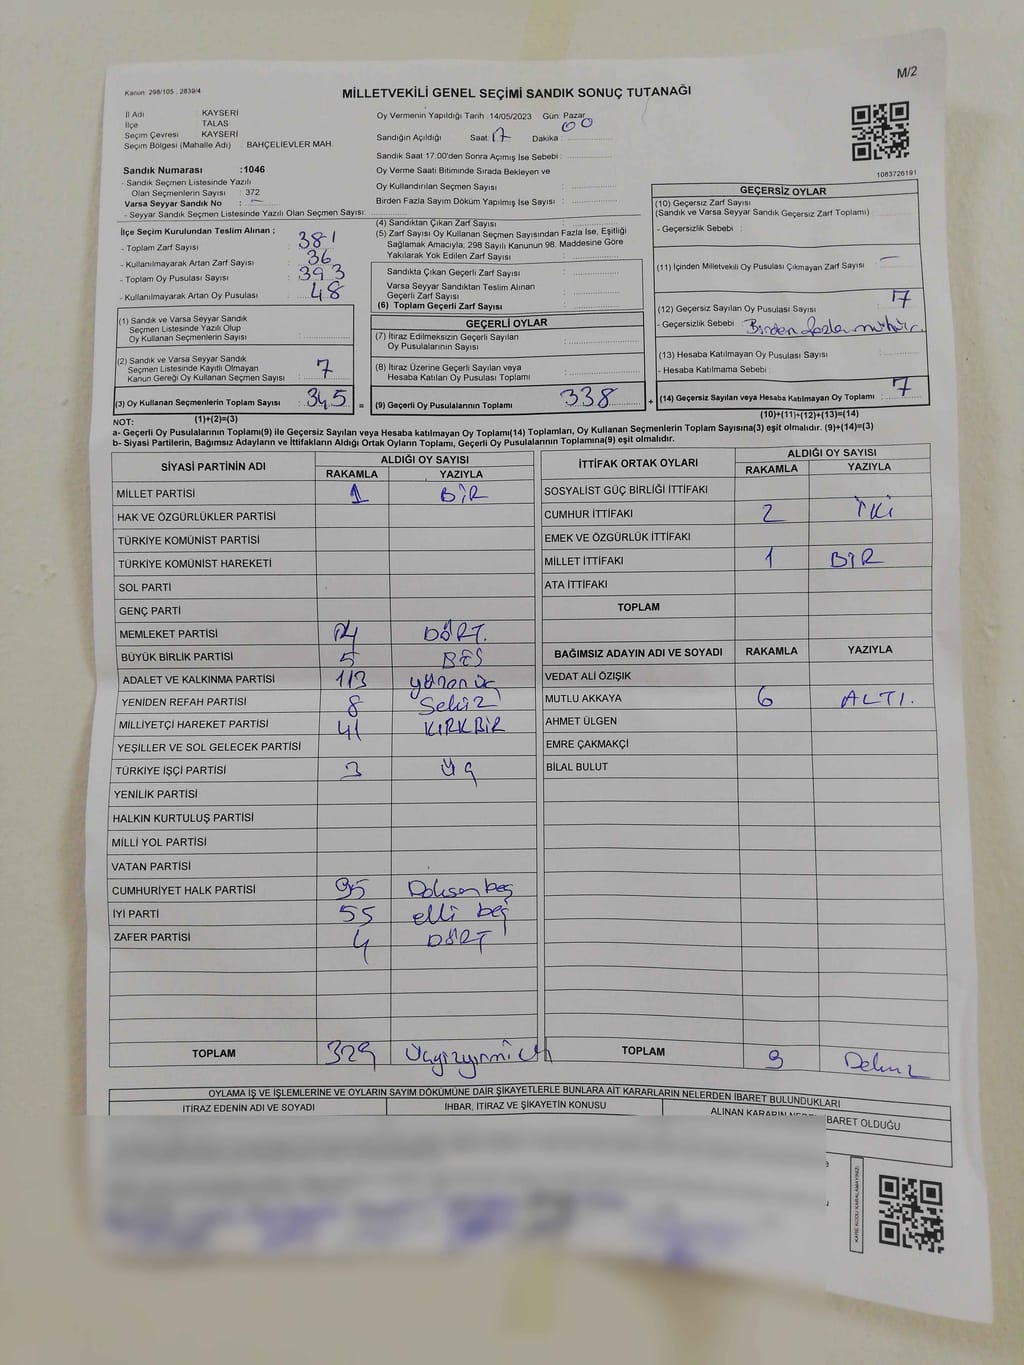 M/2
Kanun: 298/105 , 2839/4
MİLLETVEKİLİ GENEL SEÇİMİ SANDIK SONUÇ TUTANAĞI
İl Adı KAYSERİ
İlçe TALAS
Seçim Çevresi KAYSERİ
Seçim Bölgesi (Mahalle Adı) : BAHÇELİEVLER MAH.
Sandık Numarası :1046
- Sandık Seçmen Listesinde Yazılı
Olan Seçmenlerin Sayısı : 372
Varsa Seyyar Sandık No : -
- Seyyar Sandık Seçmen Listesinde Yazılı Olan Seçmen Sayısı:
Oy Vermenin Yapıldığı Tarih :14/05/2023 Gün: Pazar
Sandığın Açıldığı Saat: 17 Dakika : 00
Sandık Saat 17:00'den Sonra Açımış İse Sebebi :
Oy Verme Saati Bitiminde Sırada Bekleyen ve
Oy Kullandırılan Seçmen Sayısı :
Birden Fazla Sayım Döküm Yapılmış İse Sayısı :
1083726191
İlçe Seçim Kurulundan Teslim Alınan ;
- Toplam Zarf Sayısı : 381
- Kullanılmayarak Artan Zarf Sayısı : 36
- Toplam Oy Pusulası Sayısı : 393
- Kullanılmayarak Artan Oy Pusulası : 48
(1) Sandık ve Varsa Seyyar Sandık
Seçmen Listesinde Yazılı Olup
Oy Kullanan Seçmenlerin Sayısı :
(2) Sandık ve Varsa Seyyar Sandık
Seçmen Listesinde Kayıtlı Olmayan
Kanun Gereği Oy Kullanan Seçmen Sayısı : 7
(3) Oy Kullanan Seçmenlerin Toplam Sayısı : 345 =
(1)+(2)=(3)
(4) Sandıktan Çıkan Zarf Sayısı :
(5) Zarf Sayısı Oy Kullanan Seçmen Sayısından Fazla İse, Eşitliği
Sağlamak Amacıyla, 298 Sayılı Kanunun 98. Maddesine Göre
Yakılarak Yok Edilen Zarf Sayısı :
Sandıkta Çıkan Geçerli Zarf Sayısı :
Varsa Seyyar Sandıktan Teslim Alınan
Geçerli Zarf Sayısı :
(6) Toplam Geçerli Zarf Sayısı :
GEÇERLİ OYLAR
(7) İtiraz Edilmeksizin Geçerli Sayılan
Oy Pusulalarının Sayısı :
(8) İtiraz Üzerine Geçerli Sayılan veya
Hesaba Katılan Oy Pusulası Toplamı :
(9) Geçerli Oy Pusulalarının Toplamı : 338 +
GEÇERSİZ OYLAR
(10) Geçersiz Zarf Sayısı
(Sandık ve Varsa Seyyar Sandık Geçersiz Zarf Toplamı) :
- Geçersizlik Sebebi :
(11) İçinden Milletvekili Oy Pusulası Çıkmayan Zarf Sayısı : -
(12) Geçersiz Sayılan Oy Pusulası Sayısı : 7
- Geçersizlik Sebebi : Birden fazla mühür.
(13) Hesaba Katılmayan Oy Pusulası Sayısı :
- Hesaba Katılmama Sebebi :
(14) Geçersiz Sayılan veya Hesaba Katılmayan Oy Toplamı : 7
(10)+(11)+(12)+(13)=(14)
NOT:
a- Geçerli Oy Pusulalarının Toplamı(9) ile Geçersiz Sayılan veya Hesaba katılmayan Oy Toplamı(14) Toplamları, Oy Kullanan Seçmenlerin Toplam Sayısına(3) eşit olmalıdır. (9)+(14)=(3)
b- Siyasi Partilerin, Bağımsız Adayların ve İttifakların Aldığı Ortak Oyların Toplamı, Geçerli Oy Pusulalarının Toplamına(9) eşit olmalıdır.
SİYASİ PARTİNİN ADI ALDIĞI OY SAYISI
RAKAMLA YAZIYLA
MİLLET PARTİSİ 1 BİR
HAK VE ÖZGÜRLÜKLER PARTİSİ
TÜRKİYE KOMÜNİST PARTİSİ
TÜRKİYE KOMÜNİST HAREKETİ
SOL PARTİ
GENÇ PARTİ
MEMLEKET PARTİSİ 4 DÖRT.
BÜYÜK BİRLİK PARTİSİ 5 BEŞ
ADALET VE KALKINMA PARTİSİ 113 yüzonüç
YENİDEN REFAH PARTİSİ 8 Sekiz
MİLLİYETÇİ HAREKET PARTİSİ 41 KIRKBİR
YEŞİLLER VE SOL GELECEK PARTİSİ
TÜRKİYE İŞÇİ PARTİSİ 3 üç
YENİLİK PARTİSİ
HALKIN KURTULUŞ PARTİSİ
MİLLİ YOL PARTİSİ
VATAN PARTİSİ
CUMHURİYET HALK PARTİSİ 95 Doksan beş
İYİ PARTİ 55 elli beş
ZAFER PARTİSİ 4 DÖRT
TOPLAM 329
İTTİFAK ORTAK OYLARI ALDIĞI OY SAYISI
RAKAMLA YAZIYLA
SOSYALİST GÜÇ BİRLİĞİ İTTİFAKI
CUMHUR İTTİFAKI 2 İKİ
EMEK VE ÖZGÜRLÜK İTTİFAKI
MİLLET İTTİFAKI 1 BİR
ATA İTTİFAKI
TOPLAM
BAĞIMSIZ ADAYIN ADI VE SOYADI RAKAMLA YAZIYLA
VEDAT ALİ ÖZIŞIK
MUTLU AKKAYA 6 ALTI.
AHMET ÜLGEN
EMRE ÇAKMAKÇİ
BİLAL BULUT
TOPLAM 9
OYLAMA İŞ VE İŞLEMLERİNE VE OYLARIN SAYIM DÖKÜMÜNE DAİR ŞİKAYETLERLE BUNLARA AİT KARARLARIN NELERDEN İBARET BULUNDUKLARI
İTİRAZ EDENİN ADI VE SOYADI İHBAR, İTİRAZ VE ŞİKAYETİN KONUSU ALINAN KARARIN NEDEN İBARET OLDUĞU
KARE KODU KARALAMAYINIZ